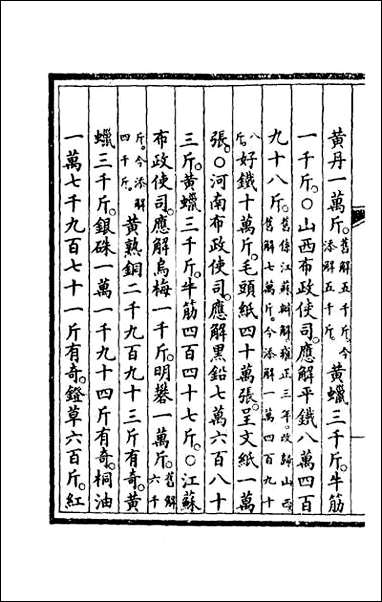 黃丹一萬斤。舊解五千斤。今添解五千斤。黃蠟三千斤。牛筋
一千斤。○山西布政使司。應解平鐵八萬四百
九十八斤。舊係江蘇辦解。雍正三年。改歸山西舊解七萬斤。今添解一萬四百九十
八斤。好鐵十萬斤。毛頭紙四十萬張。呈文紙一萬
張。○河南布政使司。應解黑鉛七萬六百八十
三斤。黃蠟三千斤。牛筋四百四十七斤。○江蘇
布政使司。應解烏梅一千斤。明礬一萬斤。舊解六千
斤。今添解四千斤。黃熟銅二千九百九十三斤有奇。黃
蠟三千斤。銀硃一萬一千九十四斤有奇。桐油
一萬七千九百七十一斤有奇。鐙草六百斤。紅